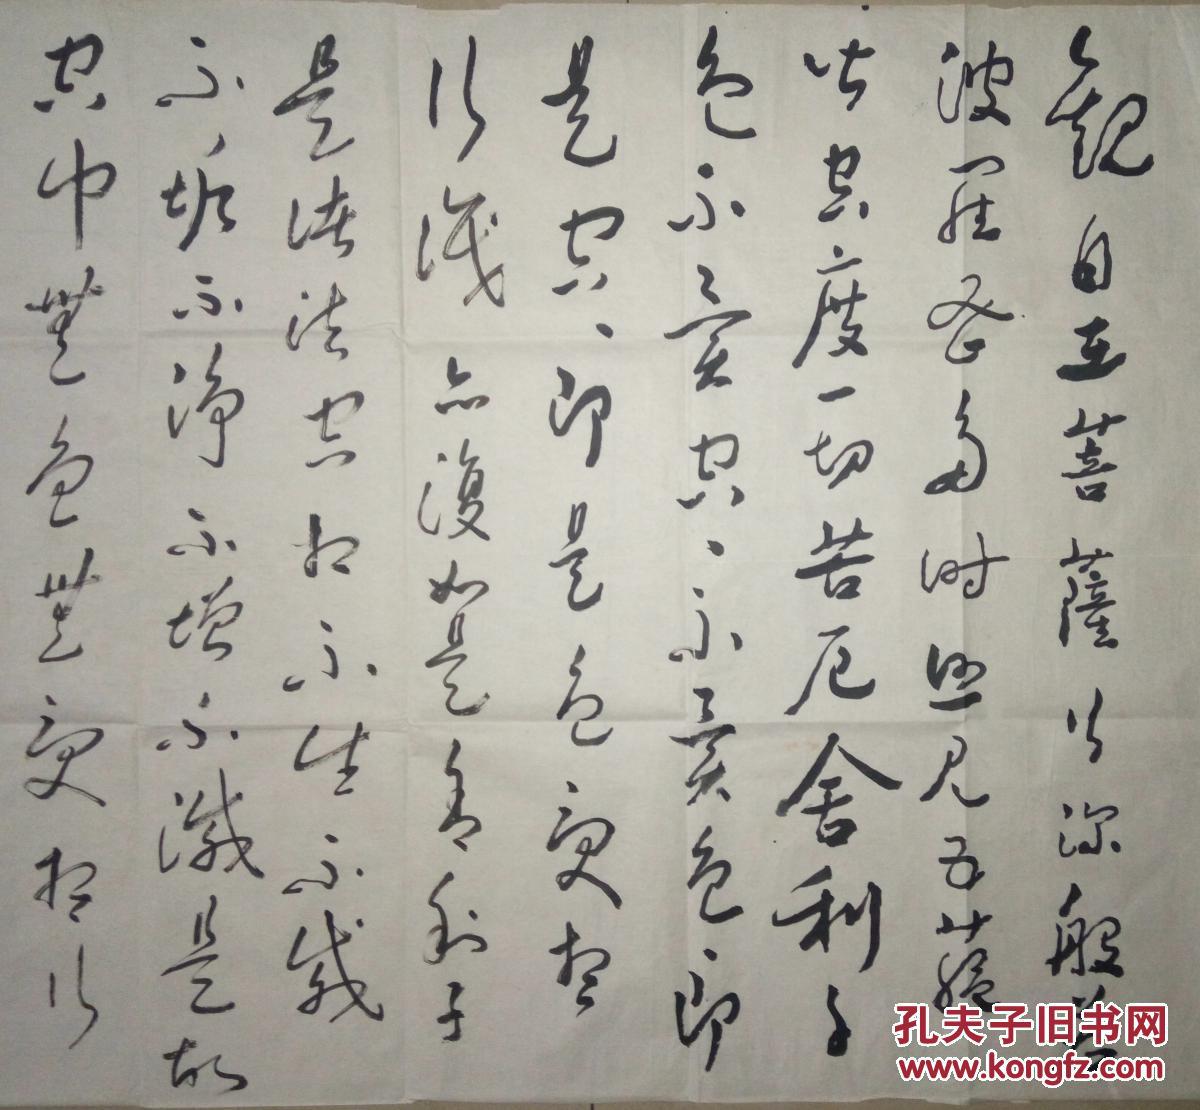 觀自在菩薩行深般若
波羅蜜多时照見五蘊
皆空度一切苦厄舍利子
色不異空、不異色、即
是空、即是色受想
行識亦復如是舍利子
是諸法空相不生不滅
不垢不淨不增不減是故
空中無色無受想行
孔夫子旧书网
www.kongfz.com